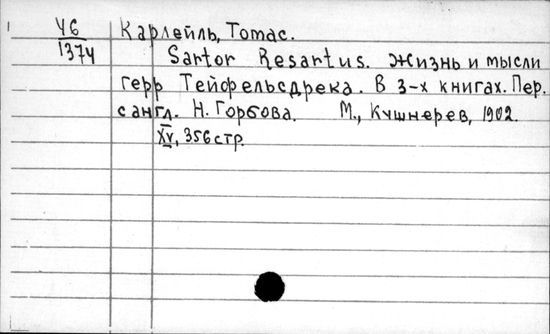 У6
1374
Карлейль, Томас.
Sartor Resartus. Жизнь и мысли
герр Тейфельсдрека. В 3-х книгах. Пер.
с англ. Н. Горбова. М., Кушнерев, 1902.
XV, 356 стр.